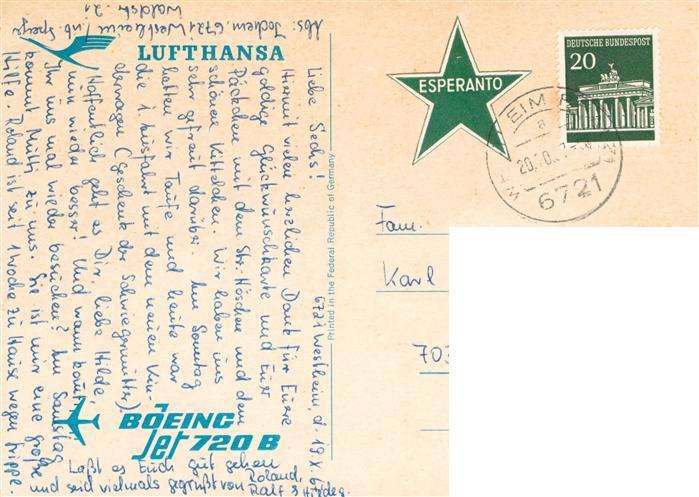 Abs: Jochem, 6721 Westheim / üb. Speyer
Waldstr. 21
LUFTHANSA
6721 Westheim, d. 19.X.67
Liebe Sechs!
Hiermit vielen herzlichen Dank für Eure
goldige Glückwunschkarte und Euer
Päckchen mit dem Str. Höschen und dem
schönen Kittelchen. Wir haben uns
sehr gefreut darüber. Am Sonntag
hatten wir Taufe und heute war
die 1. Ausfahrt mit dem neuen Kin-
derwagen (Geschenk der Schwiegermutter).
Hoffentlich geht es Dir, liebe Hilde,
nun wieder besser! Und wann kommt
Ihr uns mal wieder besuchen? Am Samstag
kommt Mutti zu uns. Sie ist mir eine große
Hilfe. Roland ist seit 1 Woche zu Hause wegen Grippe
Laßt es Euch gut gehen
und seid vielmals gegrüßt von Roland,
Ralf & Hildeg.
BOEING
Jet 720 B
Printed in the Federal Republic of Germany
ESPERANTO
DEUTSCHE BUNDESPOST
20
6721
Fam.
Karl
703